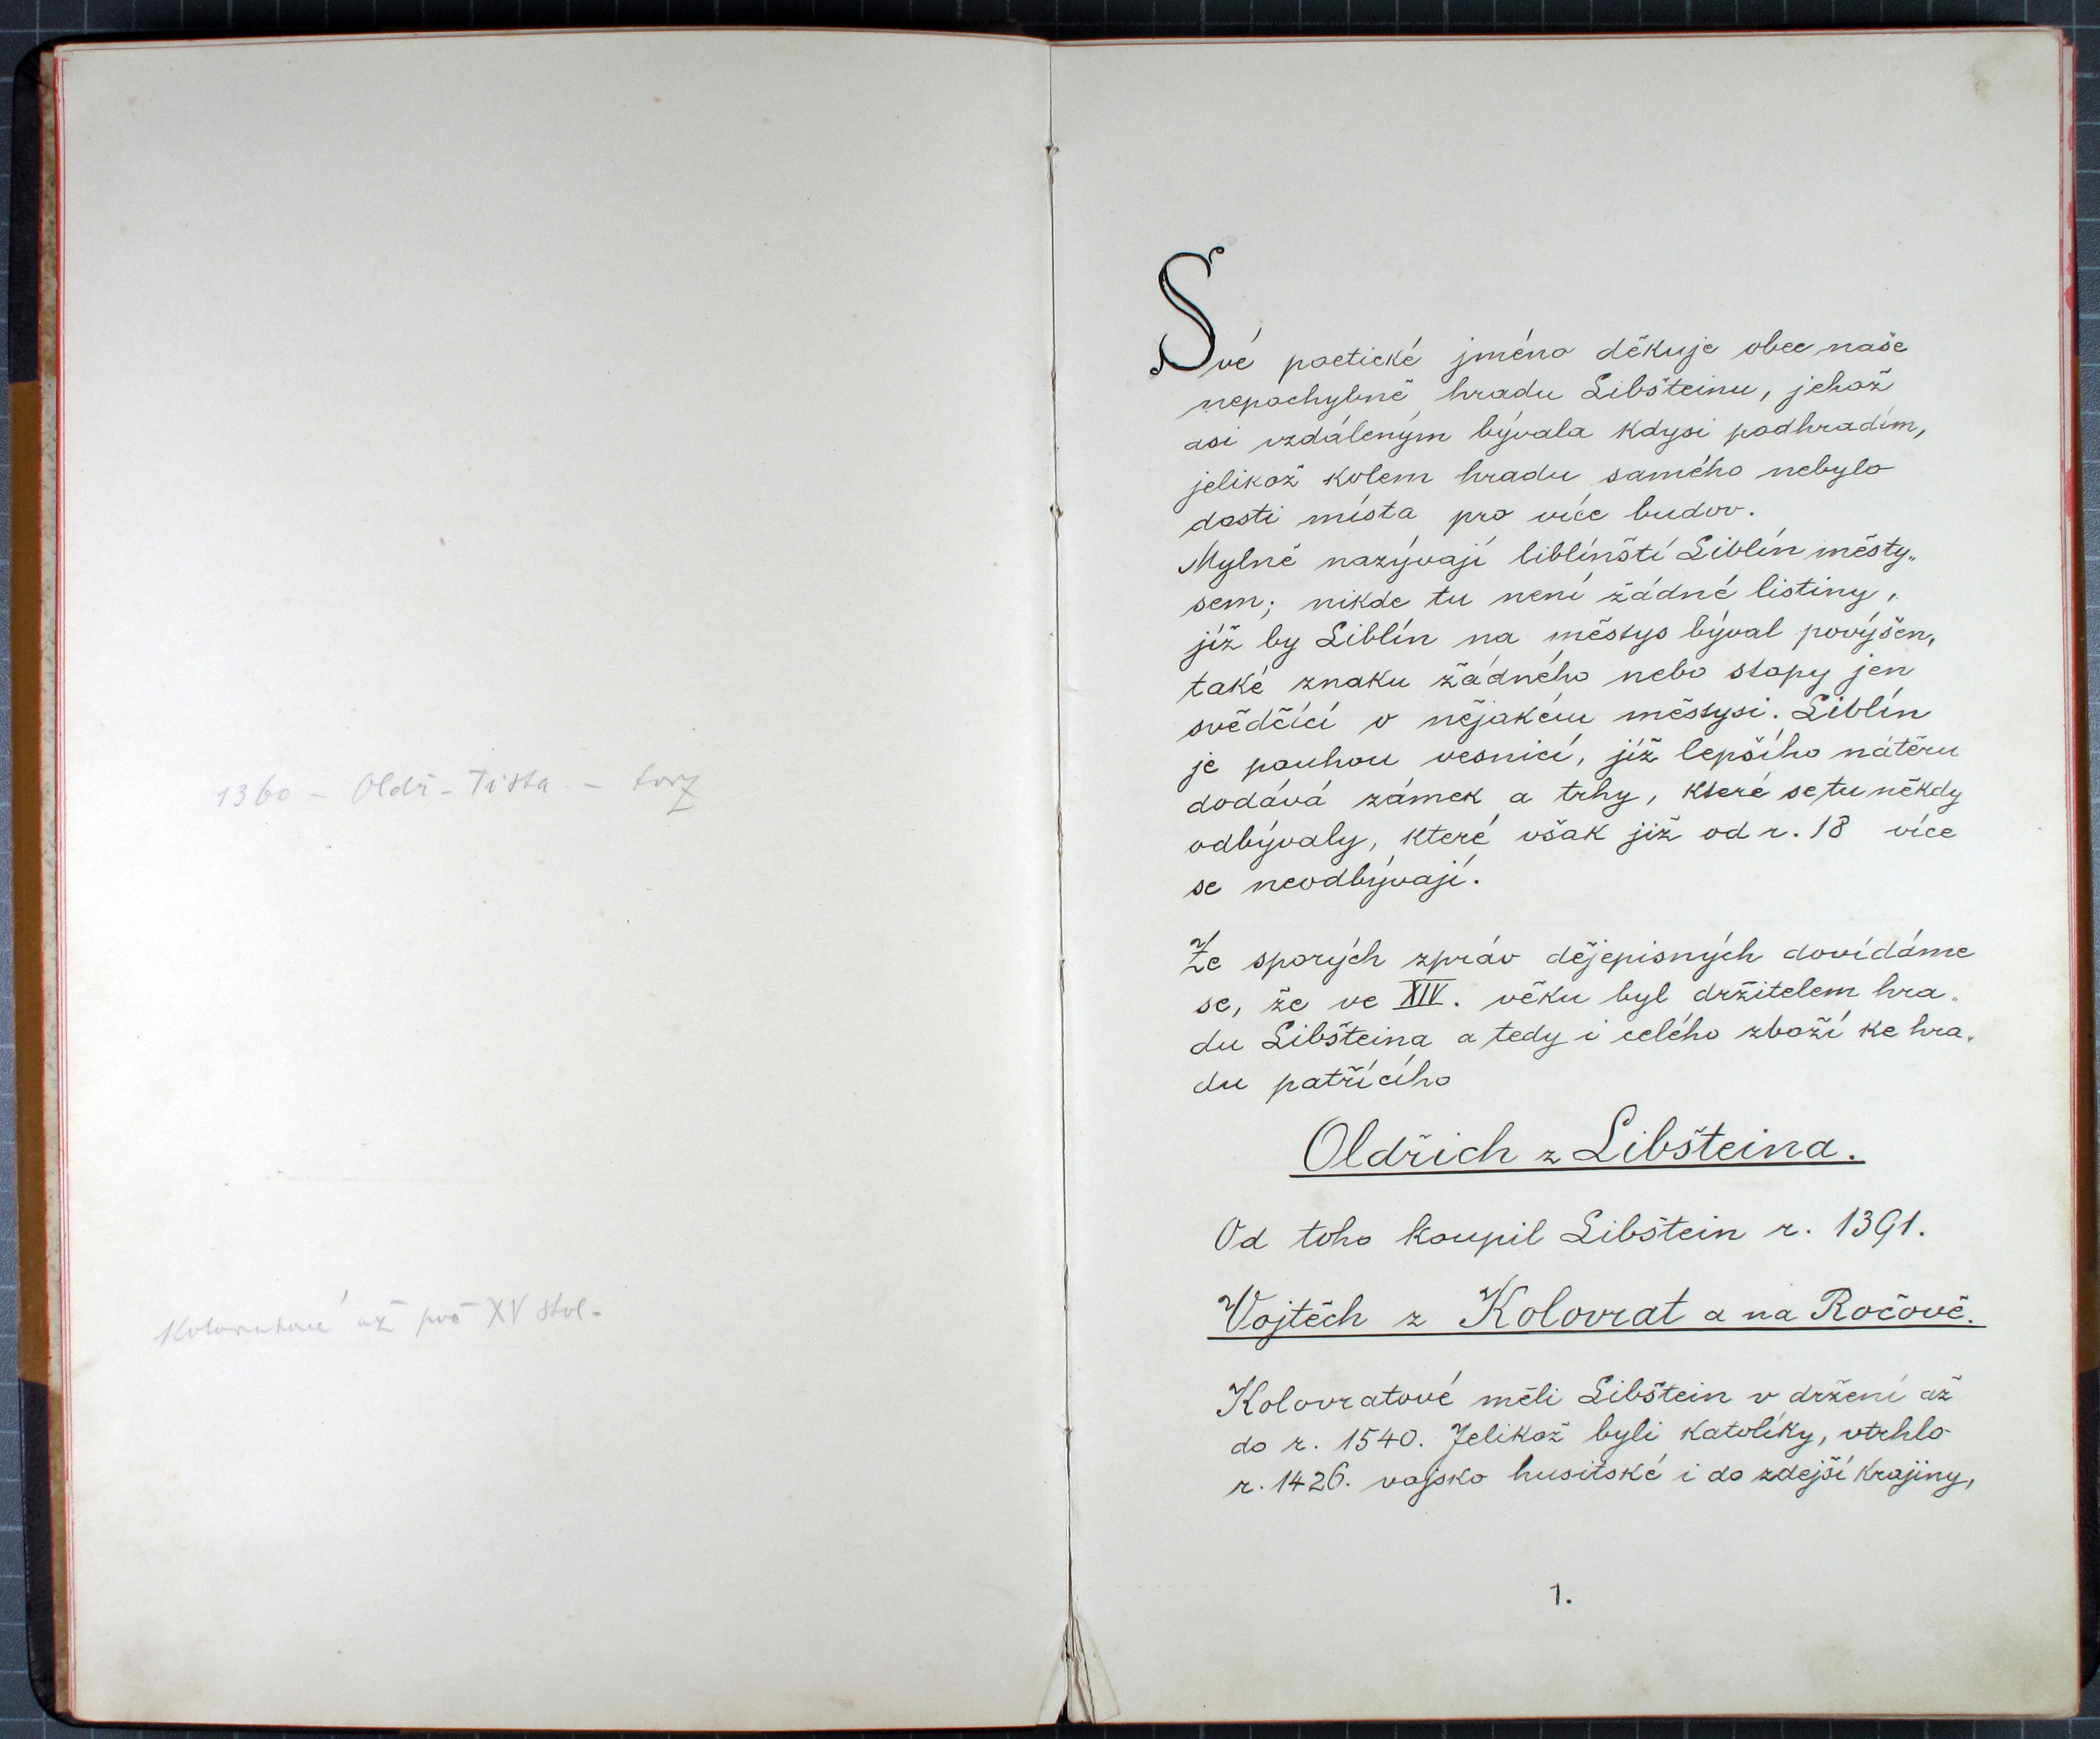 1360 - Oldř - Tista -
Kolovratové až poč XV stol -
Své poetické jméno děkuje obec naše
nepochybně hradu Libšteinu, jehož
asi vzdáleným bývala kdysi podhradím,
jelikož kolem hradu samého nebylo
dosti místa pro více budov.
Mylně nazývají liblínští Liblín městy„
sem; nikde tu není žádné listiny,
již by Liblín na městys býval povýšen,
také znaku žádného nebo stopy jen
svědčící o nějakém městysi. Liblín
je pouhou vesnicí, již lepšího nátěru
dodává zámek a trhy, které se tu někdy
odbývaly, které však již od r. 18 více
se neodbývají.
Ze sporých zpráv dějepisných dovídáme
se, že ve XIV. věku byl držitelem hra„
du Libšteina a tedy i celého zboží ke hra„
du patřícího
Oldřich z Libšteina.
Od toho koupil Libštein r. 1391.
Vojtěch z Kolovrat a na Ročově.
Kolovratové měli Libštein v držení až
do r. 1540. Jelikož byli katolíky, vtrhlo
r. 1426. vojsko husitské i do zdejší krajiny,
1.